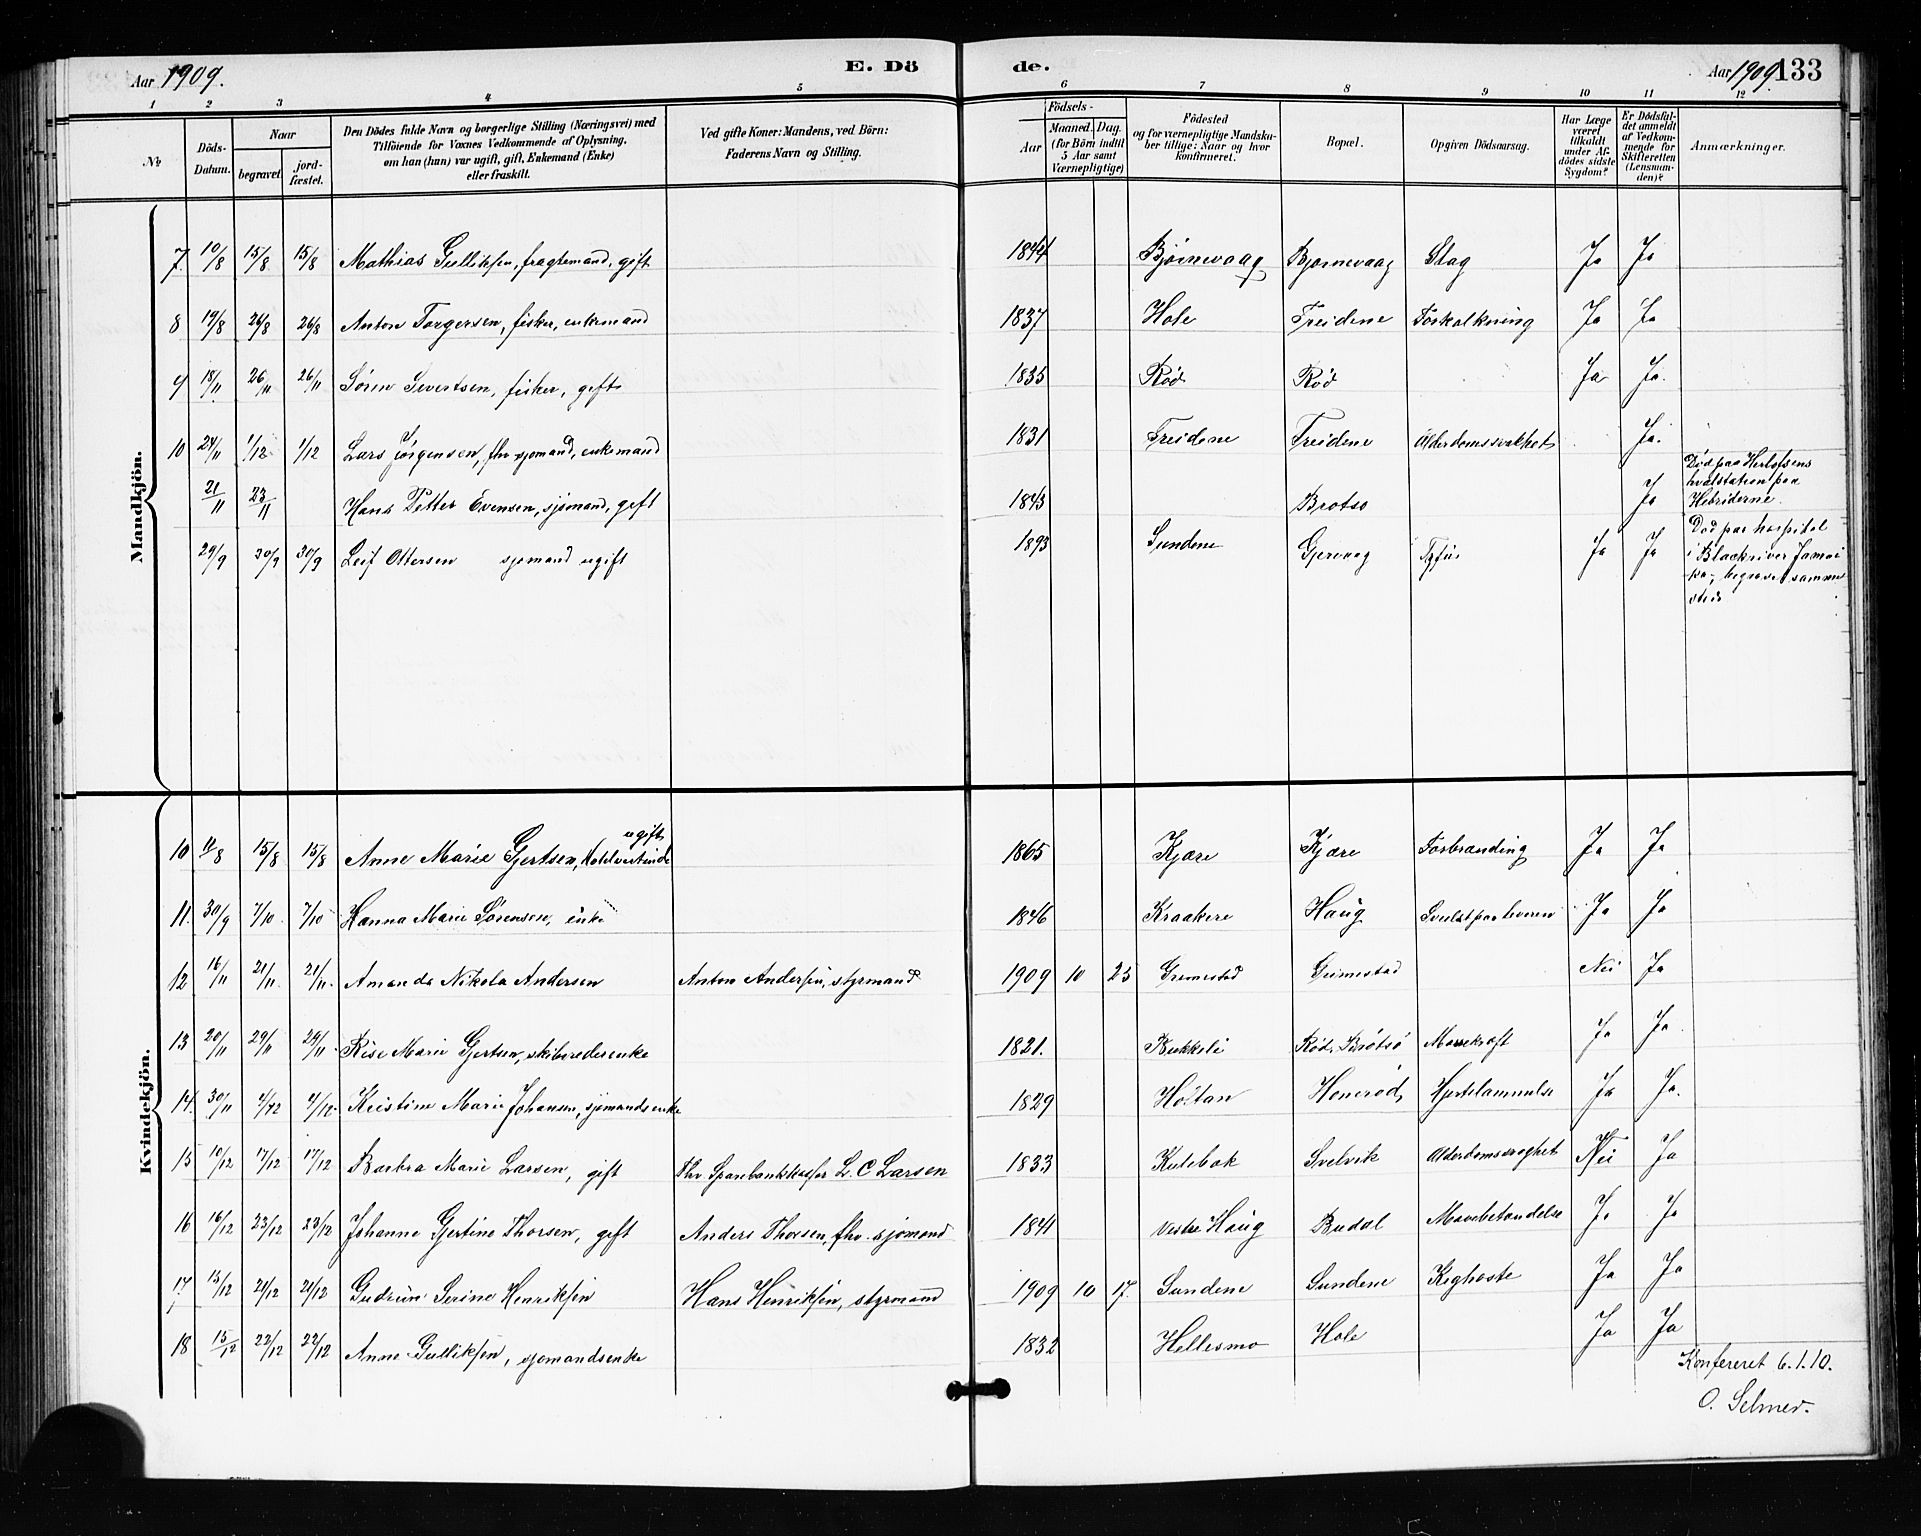 Aar 1909. E. Dö de. Aar 1909. 133
1 2 3 4 5 6 7 8 9 10 11 12
No
Döds-Datum.
Naar
begravet. jordfæstet.
Den Dödes fulde Navn og borgerlige Stilling (Næringsvei) med
Tilföiende for Voxnes Vedkommende af Oplysning,
om han (hun) var ugift, gift, Enkemand (Enke)
eller fraskilt.
Ved gifte Koner: Mandens, ved Börn:
Faderens Navn og Stilling.
Födsels-
Aar Maaned. Dag.
(for Börn indtil
5 Aar samt
Værnepligtige)
Födested
og for værnepligtige Mandska-
ber tillige: Naar og hvor
konfirmeret.
Bopæl.
Opgiven Dödsaarsag.
Har Læge
været
tilkaldt
under Af-
dödes sidste
Sygdom?
Er Dödsfal-
det anmeldt
af Vedkom-
mende for
Skifteretten
(Lensman-
den)?
Anmærkninger.
Mandkjön.
7. 10/8 15/8 15/8 Mathias Gulliksen, fragtemand, gift 1844 Bjørnevaag Bjørnevaag Slag Ja Ja
8 19/8 26/8 26/8 Anton Torgersen, fisker, enkemand 1837 Hole Treidene Forkalkning Ja Ja
9 18/11 26/11 26/11 Søren Sivertsen, fisker, gift 1835 Rød Rød Ja Ja.
10 24/11 1/12 1/12 Lars Jørgensen, fhv sjømand, enkemand 1831 Treidene Treidene Alderdomssvakhet Ja.
21/11 23/11 Hans Petter Evensen, sjømand, gift 1843 Brøtsø Ja Død paa Herlofsens
hvalstation paa
Hebriderne.
29/9 30/9 30/9 Leif Ottersen sjømand ugift 1893 Sundene Gjervaag Tyfus Ja Ja Død paa hospital
i Blackriver Jamai
ka, begravet samme
sted
Kvindekjön.
10 11/8 15/8 15/8 Anne Marie Gjertsen, Hotelvertinde ugift 1865 Kjære Kjære Forbrænding Ja Ja
11. 30/9 7/10 7/10 Hanna Marie Sørensen, enke 1846 Kraakere Haug Svulst paa leveren Ja Ja
12 16/11 21/11 21/11 Amanda Nikola Andersen Anton Andersen, styrmand 1909 10 25 Grimestad Grimestad Nei Ja
13 20/11 29/11 29/11 Rise Marie Gjertsen, skibsrederenke 1821. Bukkeli Rød, Brøtsø Mavekræft Ja Ja
14. 30/11 4/12 4/12 Kristine Marie Johansen, sjømandsenke 1829 Holtan Honerød, Hjertelammelse Ja Ja.
15 10/12 17/12 17/12 Barbra Marie Larsen, gift Fhv Sparebankkasser L. C Larsen 1833 Kulebak Svelvik Alderdomssvaghet Nei Ja
16 16/12 23/12 23/12 Johanne Gjertine Thorsen, gift Anders Thorsen, fhv. sjømand 1841 Vestre Haug Budal Mavebetændelse Ja Ja
17 13/12 21/12 21/12 Gudrun Serine Henriksen Hans Henriksen, styrmand 1909 10 17. Sundene Sundene Kighoste Ja Ja
18 15/12 22/12 22/12 Anne Gulliksen, sjømandsenke 1832 Hellesmo Hole Ja Ja
Konfereret 6.1.10.
O. Selmer.